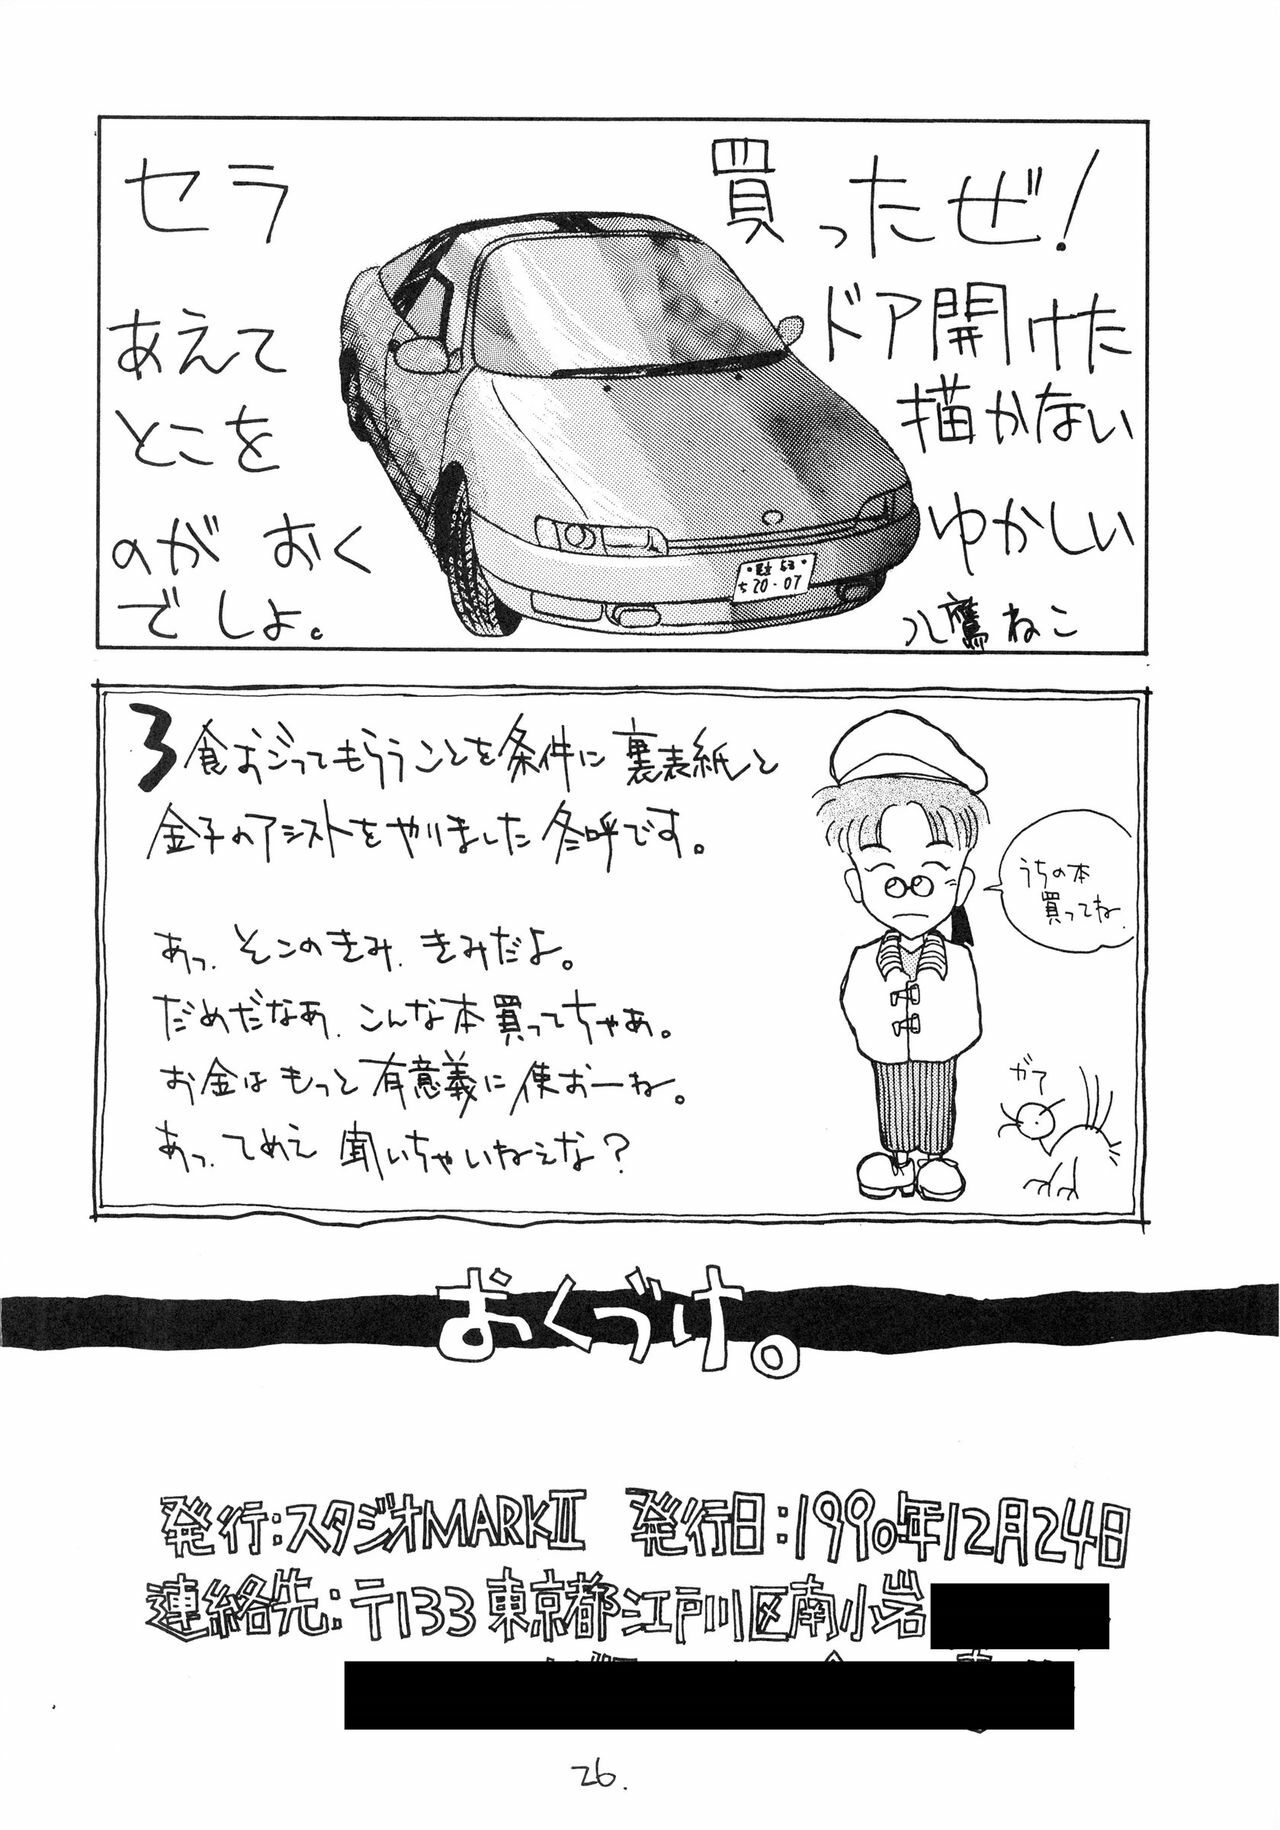 セラ 買ったぜ!
あえて ドア開けた
とこを 描かない
のが おくゆかしい
でしょ。
八鷹ねこ
品川 53
ち 20-07
3食おごってもらうことを条件に裏表紙と
金子のアシストをやりました冬呼です。
あっ、そこのきみ、きみだよ。
だめだなあ、こんな本買ってちゃあ。
お金はもっと有意義に使おーね。
あっ、てめえ 聞いちゃいねえな?
うちの本
買ってね
がて
おくづけ。
発行:スタジオMARKⅡ 発行日:1990年12月24日
連絡先:〒133 東京都江戸川区南小岩
26.